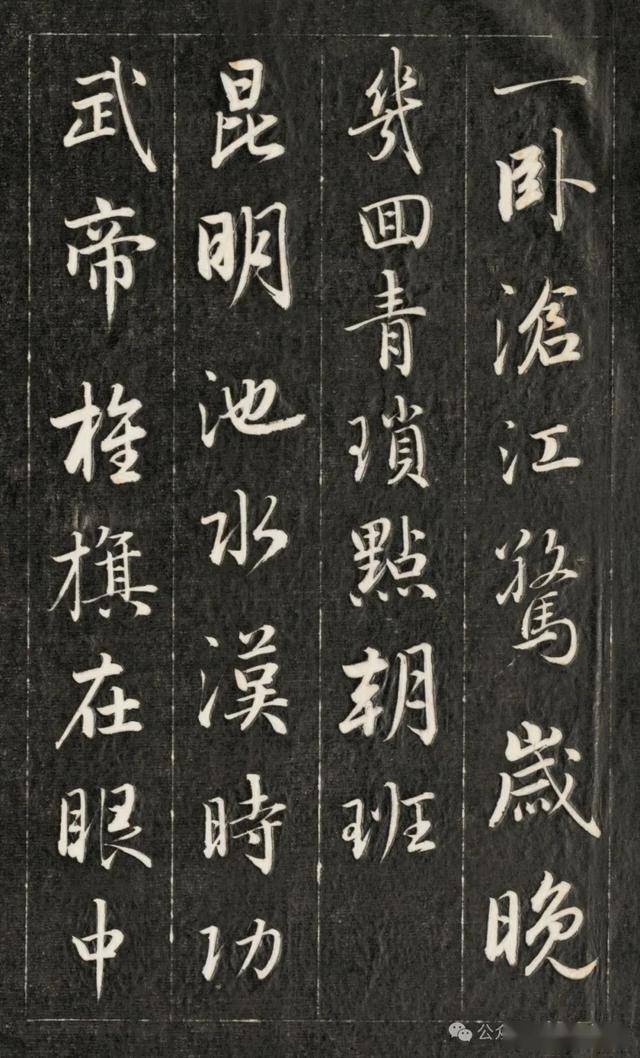 一卧滄江驚歲晚
幾回青瑣點朝班
昆明池水漢時功
武帝旌旗在眼中
公众